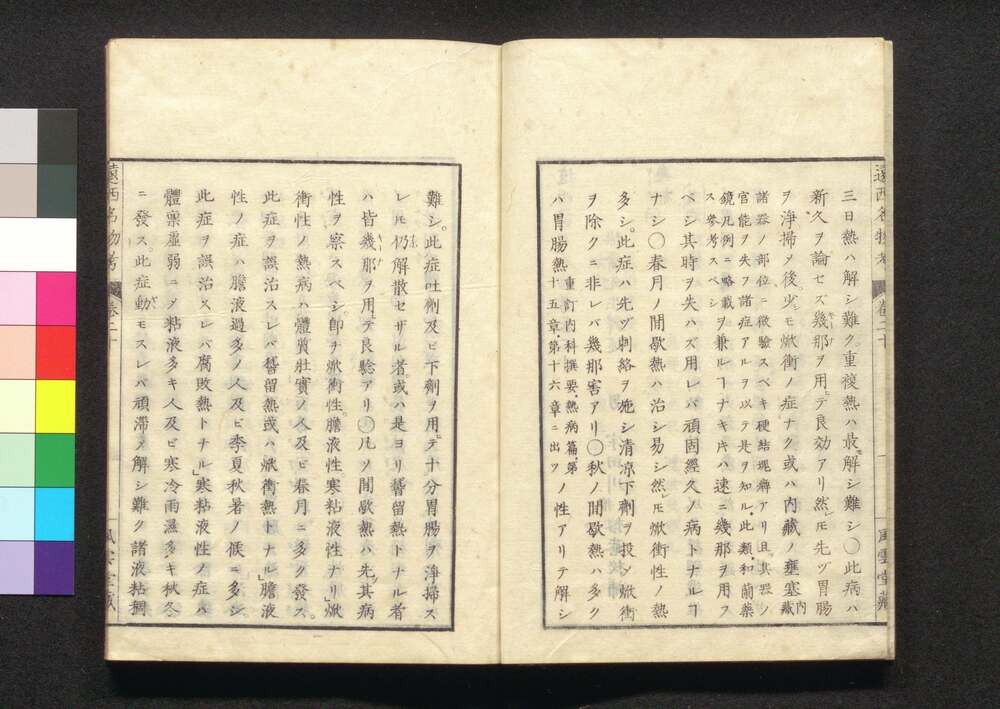 三日熱ハ解シ難ク重複熱ハ最解シ難シ〇此病ハ
新久ヲ論セズ幾那ヲ用テ良効アリ然レ𪜈先ヅ胃腸
ヲ浄掃メ後少モ焮衝ノ症ナク或ハ内藏ノ壅塞内藏
諸器ノ部位ニ徴驗スベキ硬結塊癖アリ且其器ノ
官能ヲ失フ諸症アルヲ以テ是ヲ知ル此類和蘭藥
鏡凡例ニ略載
ス參考スベシ
ヲ兼ルヿナキ𪜈ハ速ニ幾那ヲ用フ
ベシ其時ヲ失ハズ用レバ頑固經久ノ病トナルヿ
ナシ〇春月ノ間歇熱ハ治シ易シ然レ𪜈焮衝性ノ熱
多シ此症ハ先ヅ刺絡ヲ施シ清凉下劑ヲ投シ焮衝
ヲ除クニ非レバ幾那害アリ〇秋ノ間歇熱ハ多ク
ハ胃腸熱重訂内科撰要熱病篇第
十五章第十六章ニ出ツノ性アリテ解シ
遠西名物考 卷二十 風雲堂藏
難シ此症吐劑及ビ下劑ヲ用テ十分胃腸ヲ淨掃ス
レ𪜈仍解散セザル者或ハ是ヨリ稽留熱トナル者
ハ皆幾那ヲ用テ良驗アリ〇凡ソ間歇熱ハ先ヅ其病
性ヲ察スベシ卽チ焮衝性膽液性寒粘液性ナリ焮
衝性ノ熱病ハ體質壯實ノ人及ビ春月ニ多ク發ス
此症ヲ誤治スレバ稽留熱或ハ焮衝熱トナル膽液
性ノ症ハ膽液過多ノ人及ビ季夏秋暑ノ候ニ多シ
此症ヲ誤治スレバ腐敗熱トナル寒粘液性ノ症ハ
體稟虛弱ニメ粘液多キ人及ビ寒冷雨濕多キ秋冬
ニ發ス此症動モスレバ頑滯メ解シ難ク諸液粘稠
遠西名物考 卷二十 風雲堂藏